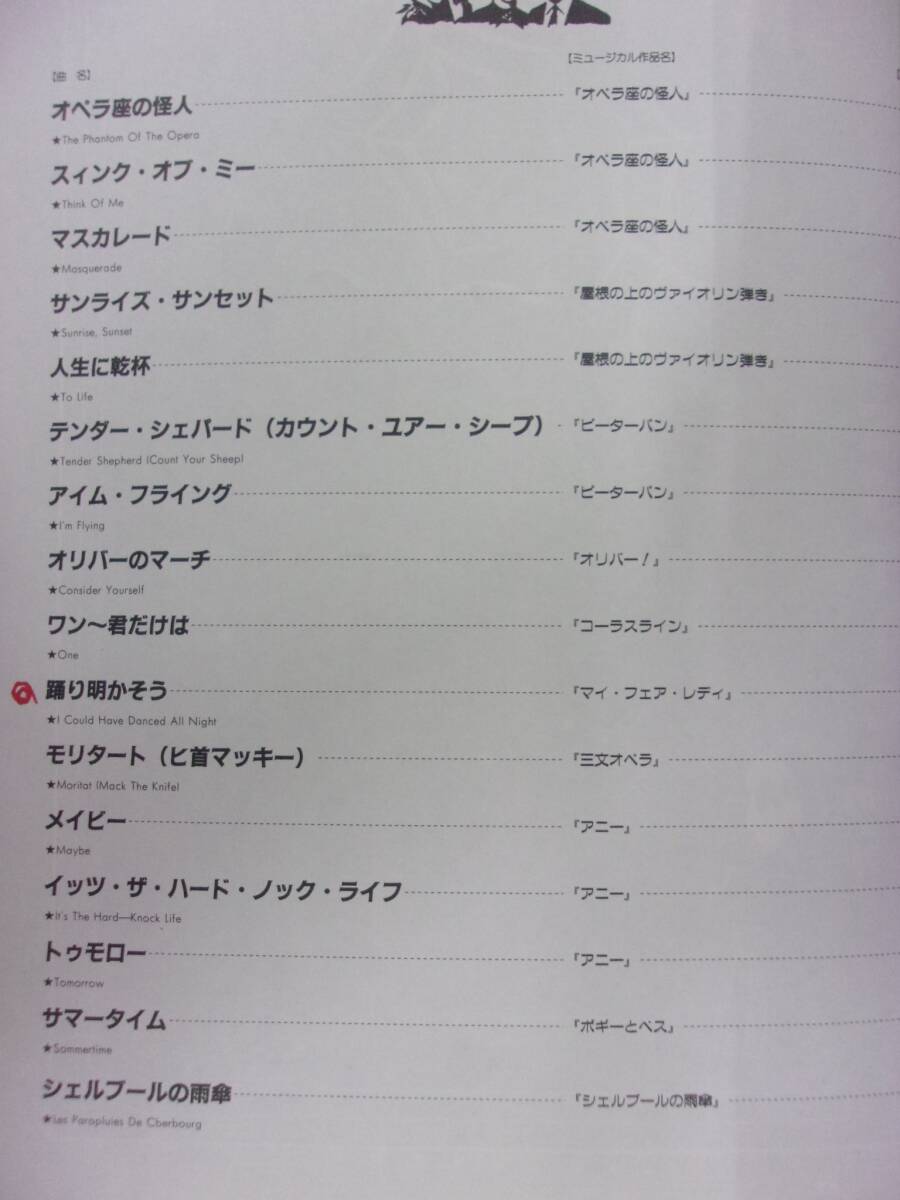 【曲 名】
【ミュージカル作品名】
オペラ座の怪人 『オペラ座の怪人』
★The Phantom Of The Opera
スィンク・オブ・ミー 『オペラ座の怪人』
★Think Of Me
マスカレード 『オペラ座の怪人』
★Masquerade
サンライズ・サンセット 『屋根の上のヴァイオリン弾き』
★Sunrise, Sunset
人生に乾杯 『屋根の上のヴァイオリン弾き』
★To Life
テンダー・シェパード（カウント・ユアー・シープ） 『ピーターパン』
★Tender Shepherd (Count Your Sheep)
アイム・フライング 『ピーターパン』
★I'm Flying
オリバーのマーチ 『オリバー！』
★Consider Yourself
ワン～君だけは 『コーラスライン』
★One
踊り明かそう 『マイ・フェア・レディ』
★I Could Have Danced All Night
モリタート（ヒ首マッキー） 『三文オペラ』
★Moritat (Mack The Knife)
メイビー 『アニー』
★Maybe
イッツ・ザ・ハード・ノック・ライフ 『アニー』
★It's The Hard—Knock Life
トゥモロー 『アニー』
★Tomorrow
サマータイム 『ポギーとベス』
★Sommertime
シェルブールの雨傘 『シェルブールの雨傘』
★Les Parapluies De Cberbourg